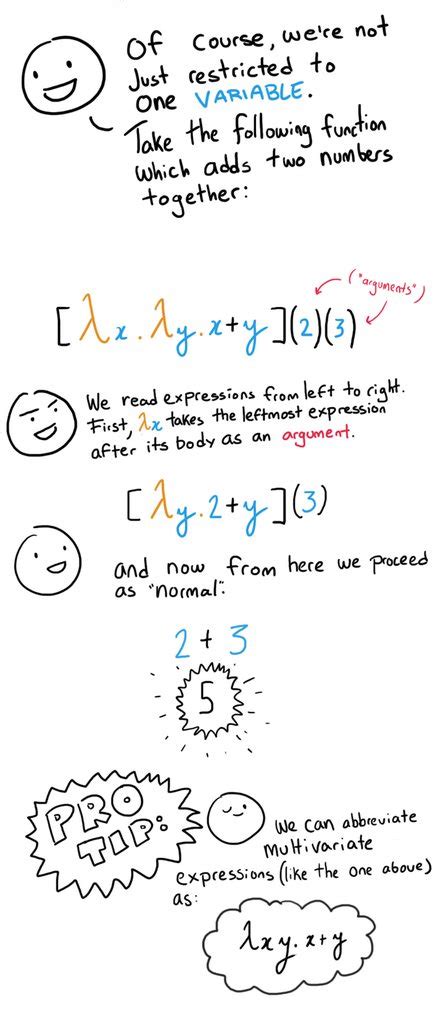 Of course, we're not
Just restricted to
One VARIABLE.
Take the following function
which adds two numbers
together:
("arguments")
[λx.λy.x+y](2)(3)
We read expressions from left to right.
First, λx takes the leftmost expression
after its body as an argument.
[λy.2+y](3)
and now from here we proceed
as "normal":
2 + 3
5
PRO
TIP:
We can abbreviate
multivariate
expressions (like the one above)
as:
λxy.x+y